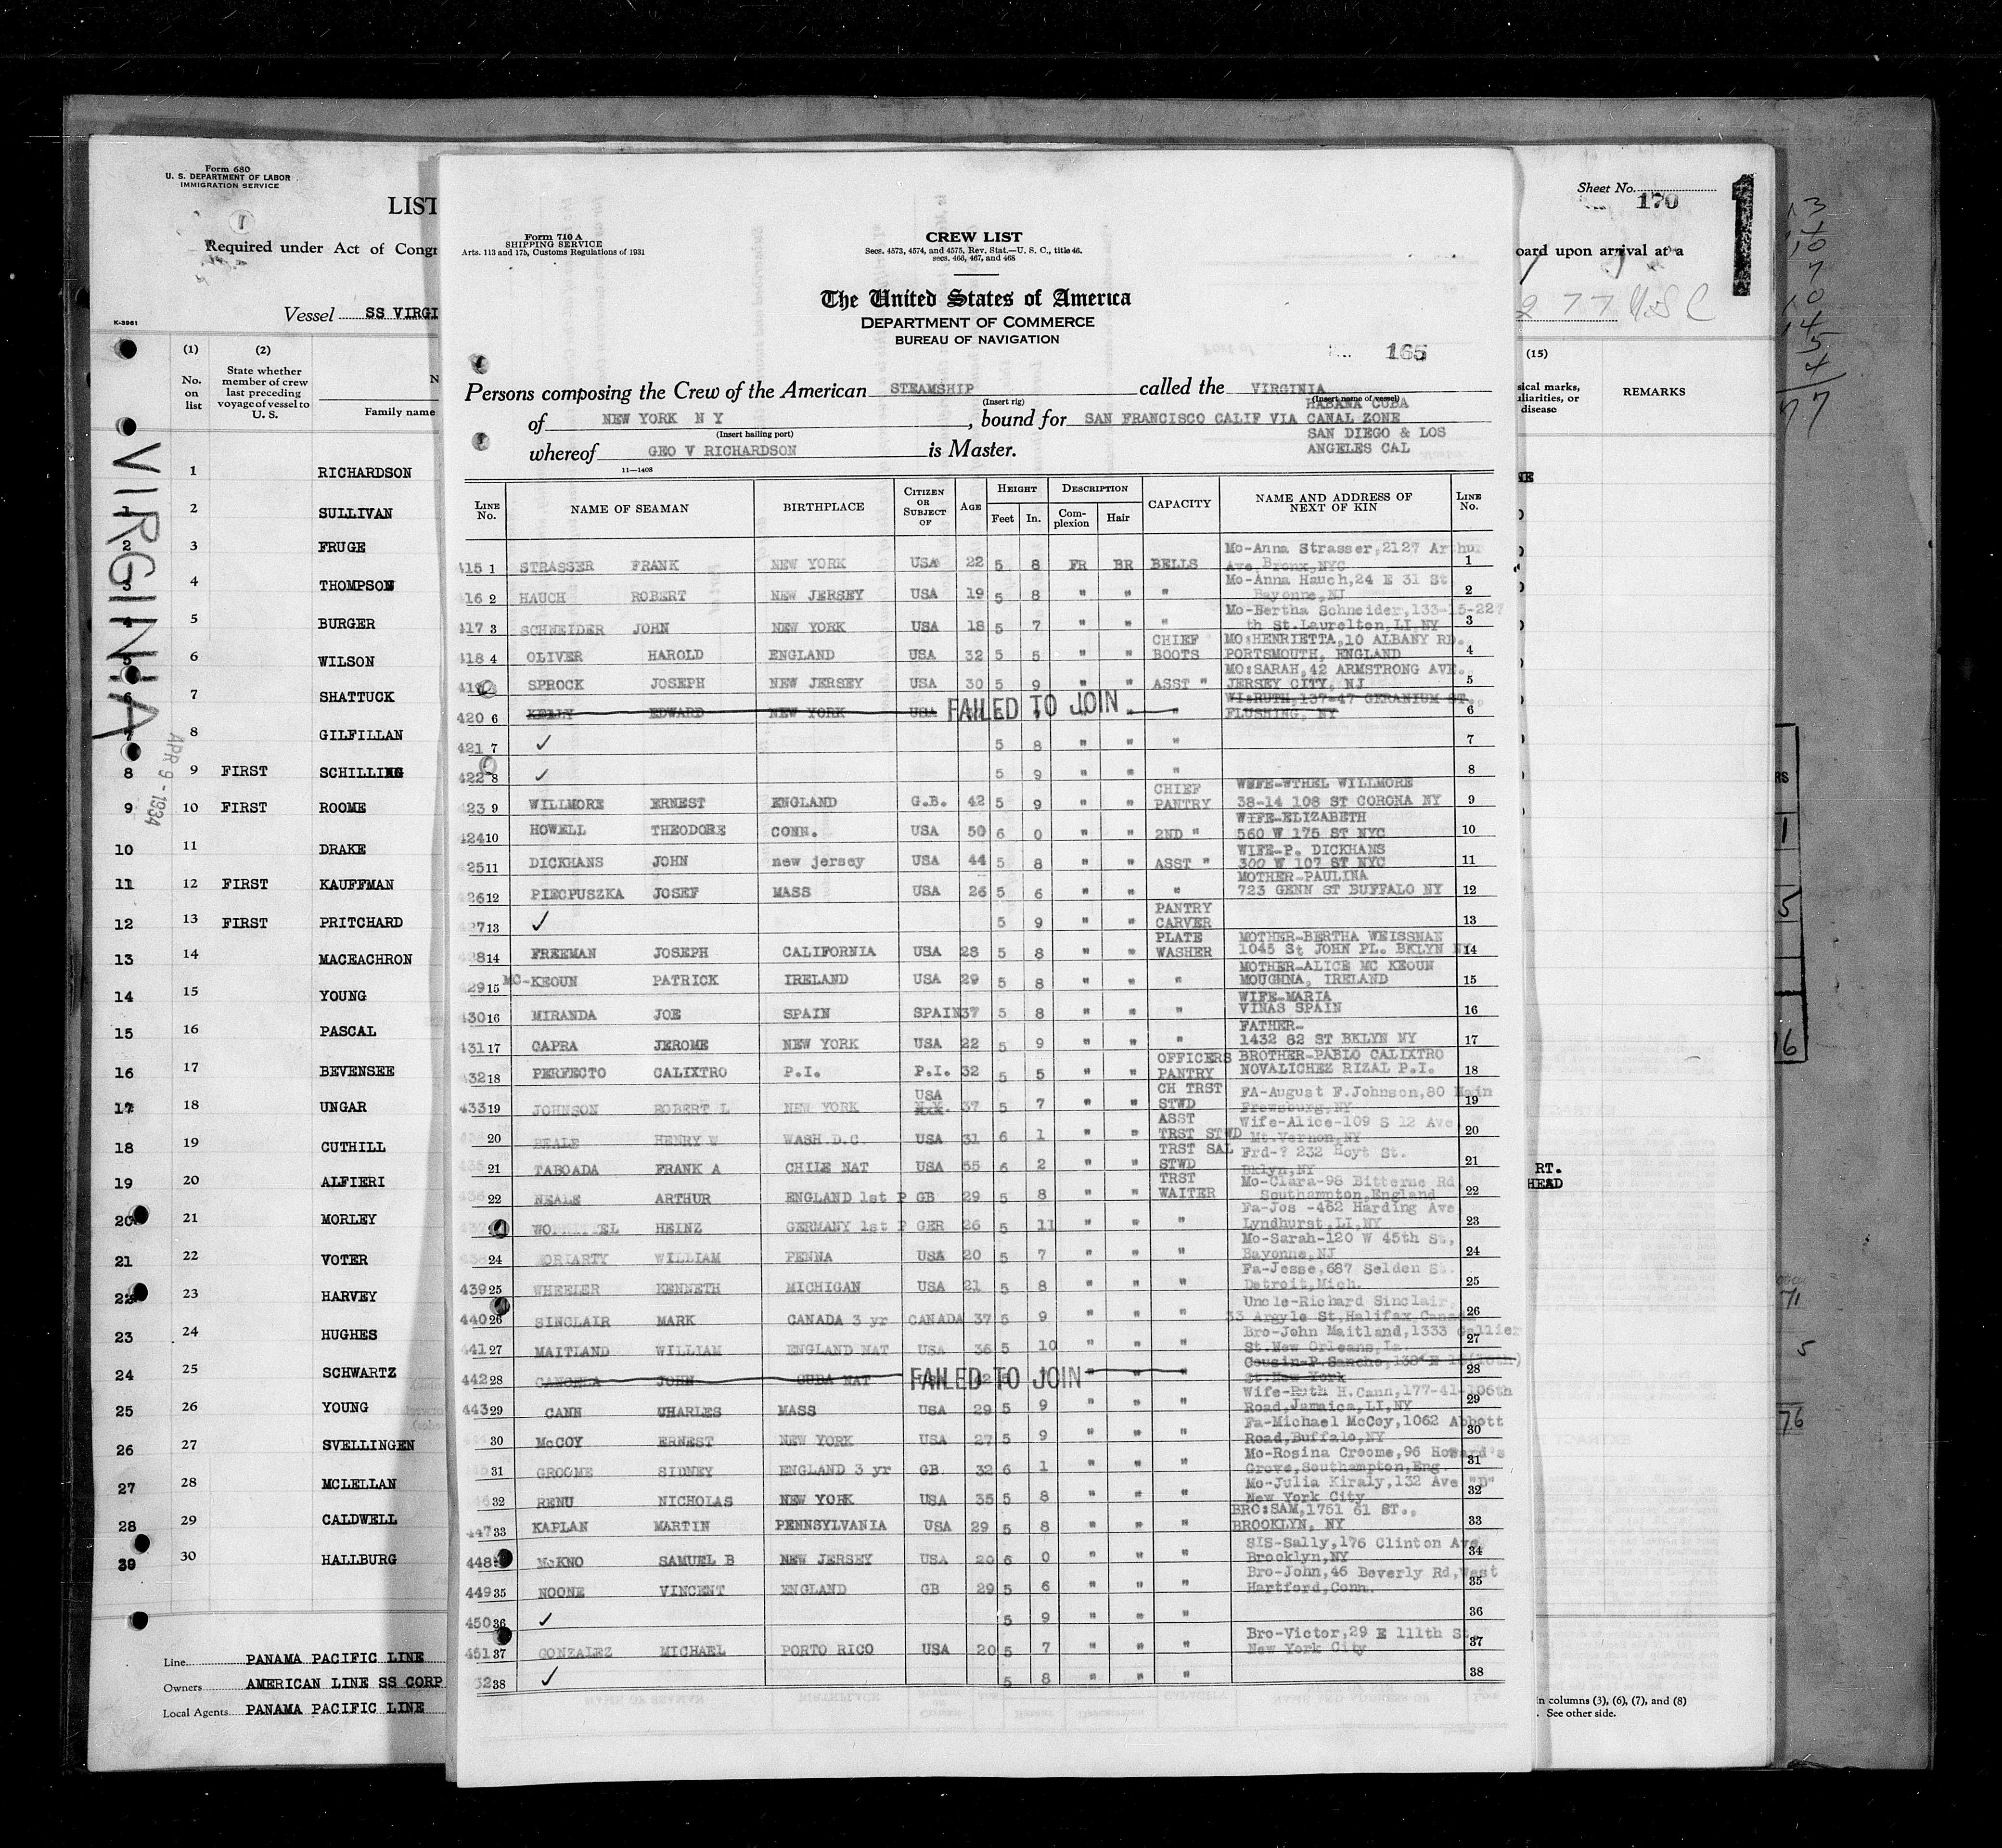 Form 680
U. S. DEPARTMENT OF LABOR
IMMIGRATION SERVICE
LIST
Required under Act of Congr
Vessel SS VIRGI
K-3961
(1) (2)
No. on list
State whether member of crew last preceding voyage of vessel to U. S.
Family name
VIRGINIA
APR 9 - 1934
1 RICHARDSON
2 2 SULLIVAN
3 FRUGE
3 4 THOMPSON
4 5 BURGER
5 6 WILSON
6 7 SHATTUCK
7 8 GILFILLAN
8 9 FIRST SCHILLING
9 10 FIRST ROOME
10 11 DRAKE
11 12 FIRST KAUFFMAN
12 13 FIRST PRITCHARD
13 14 MACEACHRON
14 15 YOUNG
15 16 PASCAL
16 17 BEVENSEE
17 18 UNGAR
18 19 CUTHILL
19 20 ALFIERI
20 21 MORLEY
21 22 VOTER
22 23 HARVEY
23 24 HUGHES
24 25 SCHWARTZ
25 26 YOUNG
26 27 SVELLINGEN
27 28 MCLELLAN
28 29 CALDWELL
39 30 HALLBURG
Line PANAMA PACIFIC LINE
Owners AMERICAN LINE SS CORP
Local Agents PANAMA PACIFIC LINE
Form 710 A
SHIPPING SERVICE
Arts. 113 and 175, Customs Regulations of 1931
CREW LIST
Secs. 4573, 4574, and 4575, Rev. Stat.—U. S. C., title 46.
secs. 466, 467, and 468
The United States of America
DEPARTMENT OF COMMERCE
BUREAU OF NAVIGATION
165
Persons composing the Crew of the American STEAMSHIP called the VIRGINIA
(Insert rig) (Insert name of vessel)
HABANA CUBA
of NEW YORK N Y, bound for SAN FRANCISCO CALIF VIA CANAL ZONE
(Insert hailing port) SAN DIEGO & LOS
whereof GEO V RICHARDSON is Master. ANGELES CAL
11—1408
LINE No. NAME OF SEAMAN BIRTHPLACE CITIZEN OR SUBJECT OF AGE HEIGHT Feet In. DESCRIPTION Complexion Hair CAPACITY NAME AND ADDRESS OF NEXT OF KIN LINE No.
Mo-Anna Strasser,2127 Arthur
415 1 STRASSER FRANK NEW YORK USA 22 5 8 FR BR BELLS Ave,Bronx,NYC 1
Mo-Anna Hauch,24 E 31 St
416 2 HAUCH ROBERT NEW JERSEY USA 19 5 8 " " " Bayonne,NJ 2
Mo-Bertha Schneider,133-15-227
417 3 SCHNEIDER JOHN NEW YORK USA 18 5 7 " " " th St.Laurelton,LI,NY 3
CHIEF MO:HENRIETTA,10 ALBANY RD.
418 4 OLIVER HAROLD ENGLAND USA 32 5 5 " " BOOTS PORTSMOUTH, ENGLAND 4
MO:SARAH,42 ARMSTRONG AVE.
419 SPROCK JOSEPH NEW JERSEY USA 30 5 9 " " ASST " JERSEY CITY, NJ 5
WI:RUTH,137-47 GERANIUM ST.
420 6 KELLY EDWARD NEW YORK USA FAILED TO JOIN " " FLUSHING, NY 6
421 7 ✓ 5 8 " " " 7
422 8 ✓ 5 9 " " " 8
CHIEF WIFE-WTHEL WILLMORE
423 9 WILLMORE ERNEST ENGLAND G.B. 42 5 9 " " PANTRY 38-14 108 ST CORONA NY 9
WIFE-ELIZABETH
424 10 HOWELL THEODORE CONN. USA 50 6 0 " " 2ND " 560 W 175 ST NYC 10
WIFE-P. DICKHANS
425 11 DICKHANS JOHN new jersey USA 44 5 8 " " ASST " 300 W 107 ST NYC 11
MOTHER-PAULINA
426 12 PIECPUSZKA JOSEF MASS USA 26 5 6 " " " 723 GENN ST BUFFALO NY 12
PANTRY
427 13 ✓ 5 9 " " CARVER 13
PLATE MOTHER-BERTHA WEISSMAN
428 14 FREEMAN JOSEPH CALIFORNIA USA 28 5 8 " " WASHER 1045 St JOHN PL. BKLYN N 14
MOTHER-ALICE MC KEOUN
429 15 MC-KEOUN PATRICK IRELAND USA 29 5 8 " " " MOUGHNA, IRELAND 15
WIFE-MARIA
430 16 MIRANDA JOE SPAIN SPAIN 37 5 8 " " " VINAS SPAIN 16
FATHER-
431 17 CAPRA JEROME NEW YORK USA 22 5 9 " " " 1432 82 ST BKLYN NY 17
OFFICERS BROTHER-PABLO CALIXTRO
432 18 PERFECTO CALIXTRO P.I. P.I. 32 5 5 " " PANTRY NOVALICHEZ RIZAL P.I. 18
USA CH TRST FA-August F.Johnson,80 Main
433 19 JOHNSON ROBERT L NEW YORK 37 5 7 " " STWD Frewsburg,NY 19
ASST Wife-Alice-109 S 12 Ave
20 BEALE HENRY W WASH D.C USA 31 6 1 " " TRST STWD Mt.Vernon,NY 20
TRST SAL Frd-? 232 Hoyt St.
21 TABOADA FRANK A CHILE NAT USA 55 6 2 " " STWD Bklyn,NY 21
TRST Mo-Clara-98 Bitterne Rd
22 NEALE ARTHUR ENGLAND 1st P GB 29 5 8 " " WAITER Southampton,England 22
Fa-Jos -462 Harding Ave
HEINZ GERMANY 1st P GER 26 5 11 " " " Lyndhurst,LI,NY 23
Mo-Sarah-120 W 45th St,
24 MORIARTY WILLIAM PENNA USA 20 5 7 " " " Bayonne,NJ 24
Fa-Jesse,687 Selden St.
439 25 WHEELER KENNETH MICHIGAN USA 21 5 8 " " " Detroit,Mich. 25
Uncle-Richard Sinclair,
440 26 SINCLAIR MARK CANADA 3 yr CANADA 37 5 9 " " " 33 Argyle St,Halifax,Canada 26
Bro-John Maitland,1333 Gallier
441 27 MAITLAND WILLIAM ENGLAND NAT USA 36 5 10 " " " St.New Orleans,La. 27
Cousin-P.Sancho,138 E
442 28 JOHN CUBA NAT FAILED TO JOIN " " St.New York 28
Wife-Ruth H.Cann,177-41-106th
443 29 CANN WHARLES MASS USA 29 5 9 " " " Road,Jamaica,LI,NY 29
Fa-Michael McCoy,1062 Abbott
30 McCOY ERNEST NEW YORK USA 27 5 9 " " " Road,Buffalo,NY 30
Mo-Rosina Croome,96 Howard's
31 GROOME SIDNEY ENGLAND 3 yr GB 32 6 1 " " " Grove,Southampton,Eng. 31
Mo-Julia Kiraly,132 Ave "D"
32 RENU NICHOLAS NEW YORK USA 35 5 8 " " " New York City 32
BRO:SAM,1751 61 ST.,
447 33 KAPLAN MARTIN PENNSYLVANIA USA 29 5 8 " " " BROOKLYN, NY 33
SIS-Sally,176 Clinton Ave,
448 McKNO SAMUEL B NEW JERSEY USA 20 6 0 " " " Brooklyn,NY 34
Bro-John,46 Beverly Rd,West
449 35 NOONE VINCENT ENGLAND GB 29 5 6 " " " Hartford,Conn. 35
450 36 ✓ 5 9 " " " 36
Bro-Victor,29 E 111th St.
451 37 GONZALEZ MICHAEL PORTO RICO USA 20 5 7 " " " New York City 37
38 ✓ 5 8 " " " 38
Sheet No.
170
1
oard upon arrival at a
277
(15)
sical marks, uliarities, or disease
REMARKS
RT.
HEAD
in columns (3), (6), (7), and (8)
. See other side.
RS
1
5
16
71
5
76